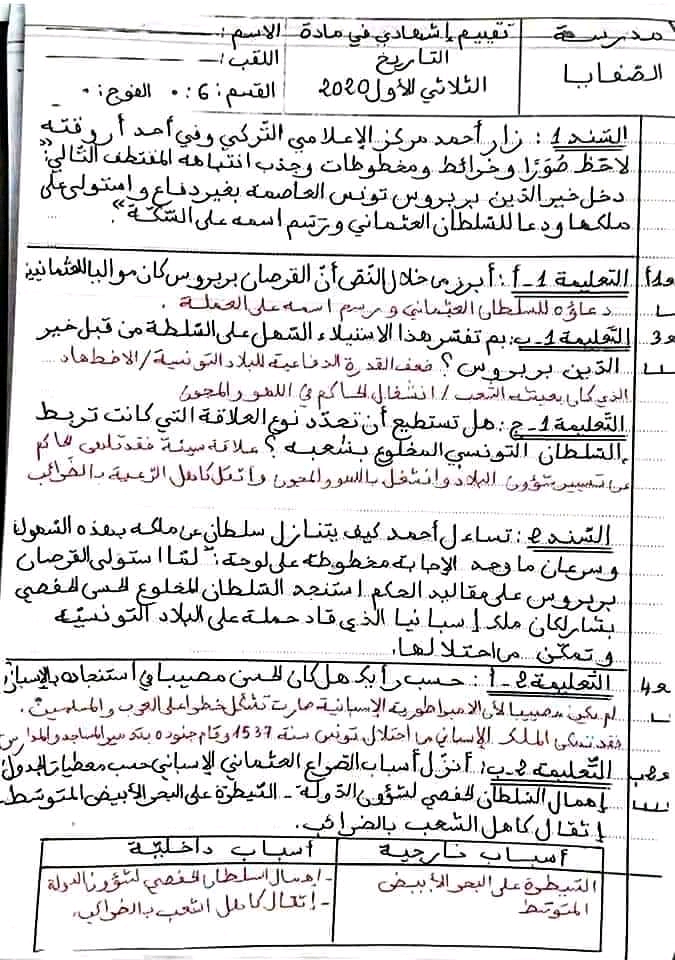 مدرسة
الصّفايا
تقييم إشهادي في مادة
التاريخ
الثلاثي الأول 2020
الاسم:
اللقب:
القسم: 6 الفوج:
السّند 1: زار أحمد مركز الإعلامي التّركي وفي أحد أروقته
لاحظ صُوَرًا وخرائط ومخطوطات وجذب انتباهه المقتطف التّالي:
دخل خير الدّين بربروس تونس العاصمة بغير دفاع واستولى على
ملكها ودعا للسّلطان العثماني ورسم اسمه على السّكّة".
مع1أ التعليمة 1-أ: أبرز من خلال النّص أنّ القرصان بربروس كان مواليا للعثمانيين
دعاؤه للسلطان العثماني و رسم اسمه على العملة.
مع3 التّعليمة 1-ب: بم تفسّر هذا الاستيلاء السّهل على السّلطة من قبل خير
الدّين بربروس؟ ضعف القدرة الدفاعية للبلاد التونسية / الاضطهاد
الذي كان يعيشه الشعب / انشغال الحاكم في اللهو والمجون
التّعليمة 1-ج: هل تستطيع أن تحدّد نوع العلاقة التي كانت تربط
السّلطان التونسي المخلوع بشعبه؟ علاقة سيئة فقد تلهى الحاكم
عن تسيير شؤون البلاد وانشغل باللهو والمجون وأثقل كاهل الرّعية بالضّرائب
السّند 2: تساءل أحمد كيف يتنازل سلطان عن ملكه بهذه السّهولة
وسرعان ما وجد الإجابة مخطوطة على لوحة: "لمّا استولى القرصان
بربروس على مقاليد الحكم استنجد السّلطان المخلوع الحسن الحفصي
بشارلكان ملك إسبانيا الذي قاد حملة على البلاد التونسيّة
و تمكّن من احتلالها.
مع4 التّعليمة 2-أ: حسب رأيك هل كان الحسن مصيبا في استنجاده بالإسبان
لم يكن مصيبا لأن الامبراطورية الإسبانية صارت تشكّل خطرا على العرب والمسلمين.
فقد تمكن الملك الإسباني من احتلال تونس سنة 1537 وقام جنوده بتدمير المساجد والمدارس
مع2ب التّعليمة 2-ب: أنزّل أسباب الصّراع العثماني الإسباني حسب معطيات الجدول:
إهمال السّلطان الحفصي لشؤون الدّولة - السّيطرة على البحر الأبيض المتوسّط -
إثقال كاهل الشّعب بالضرائب.
أسباب خارجية
أسباب داخليّة
السّيطرة على البحر الأبيض
المتوسّط
- إهمال السلطان الحفصي لشؤون الدولة
- إثقال كاهل الشعب بالضرائب.